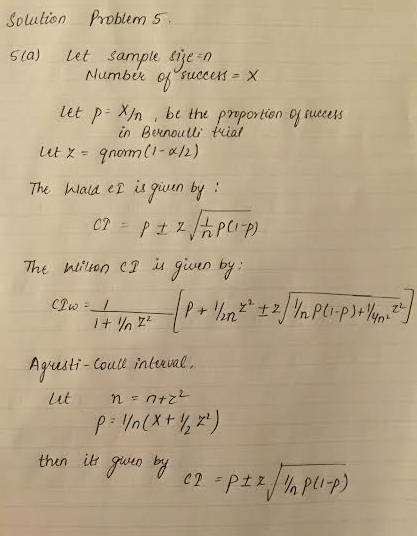 Solution Problem 5.
5(a) Let sample size = n
Number of success = X
Let p = X/n, be the proportion of success
in Bernoulli trial
Let z = qnorm(1-α/2)
The Wald CI is given by :
CI = p ± z √(1/n p(1-p))
The Wilson CI is given by :
CIw = 1/(1 + 1/n z²) [p + 1/2n z² ± z √(1/n p(1-p) + 1/4n² z²)]
Agresti-Coull interval.
Let n = n+z²
p = 1/n (X + 1/2 z²)
then its given by
CI = p ± z √(1/n p(1-p))